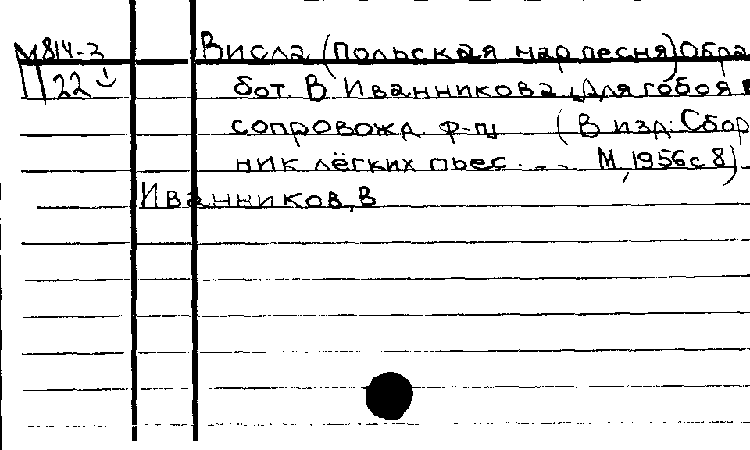 М814-3 Висла (Польская нар песня) Обра
П 22 бот. В Иванникова, Для гобоя в
сопровожд. ф-п (В изд: Сбор
ник лёгких пьес... М, 1956 с 8)
Иванников, В